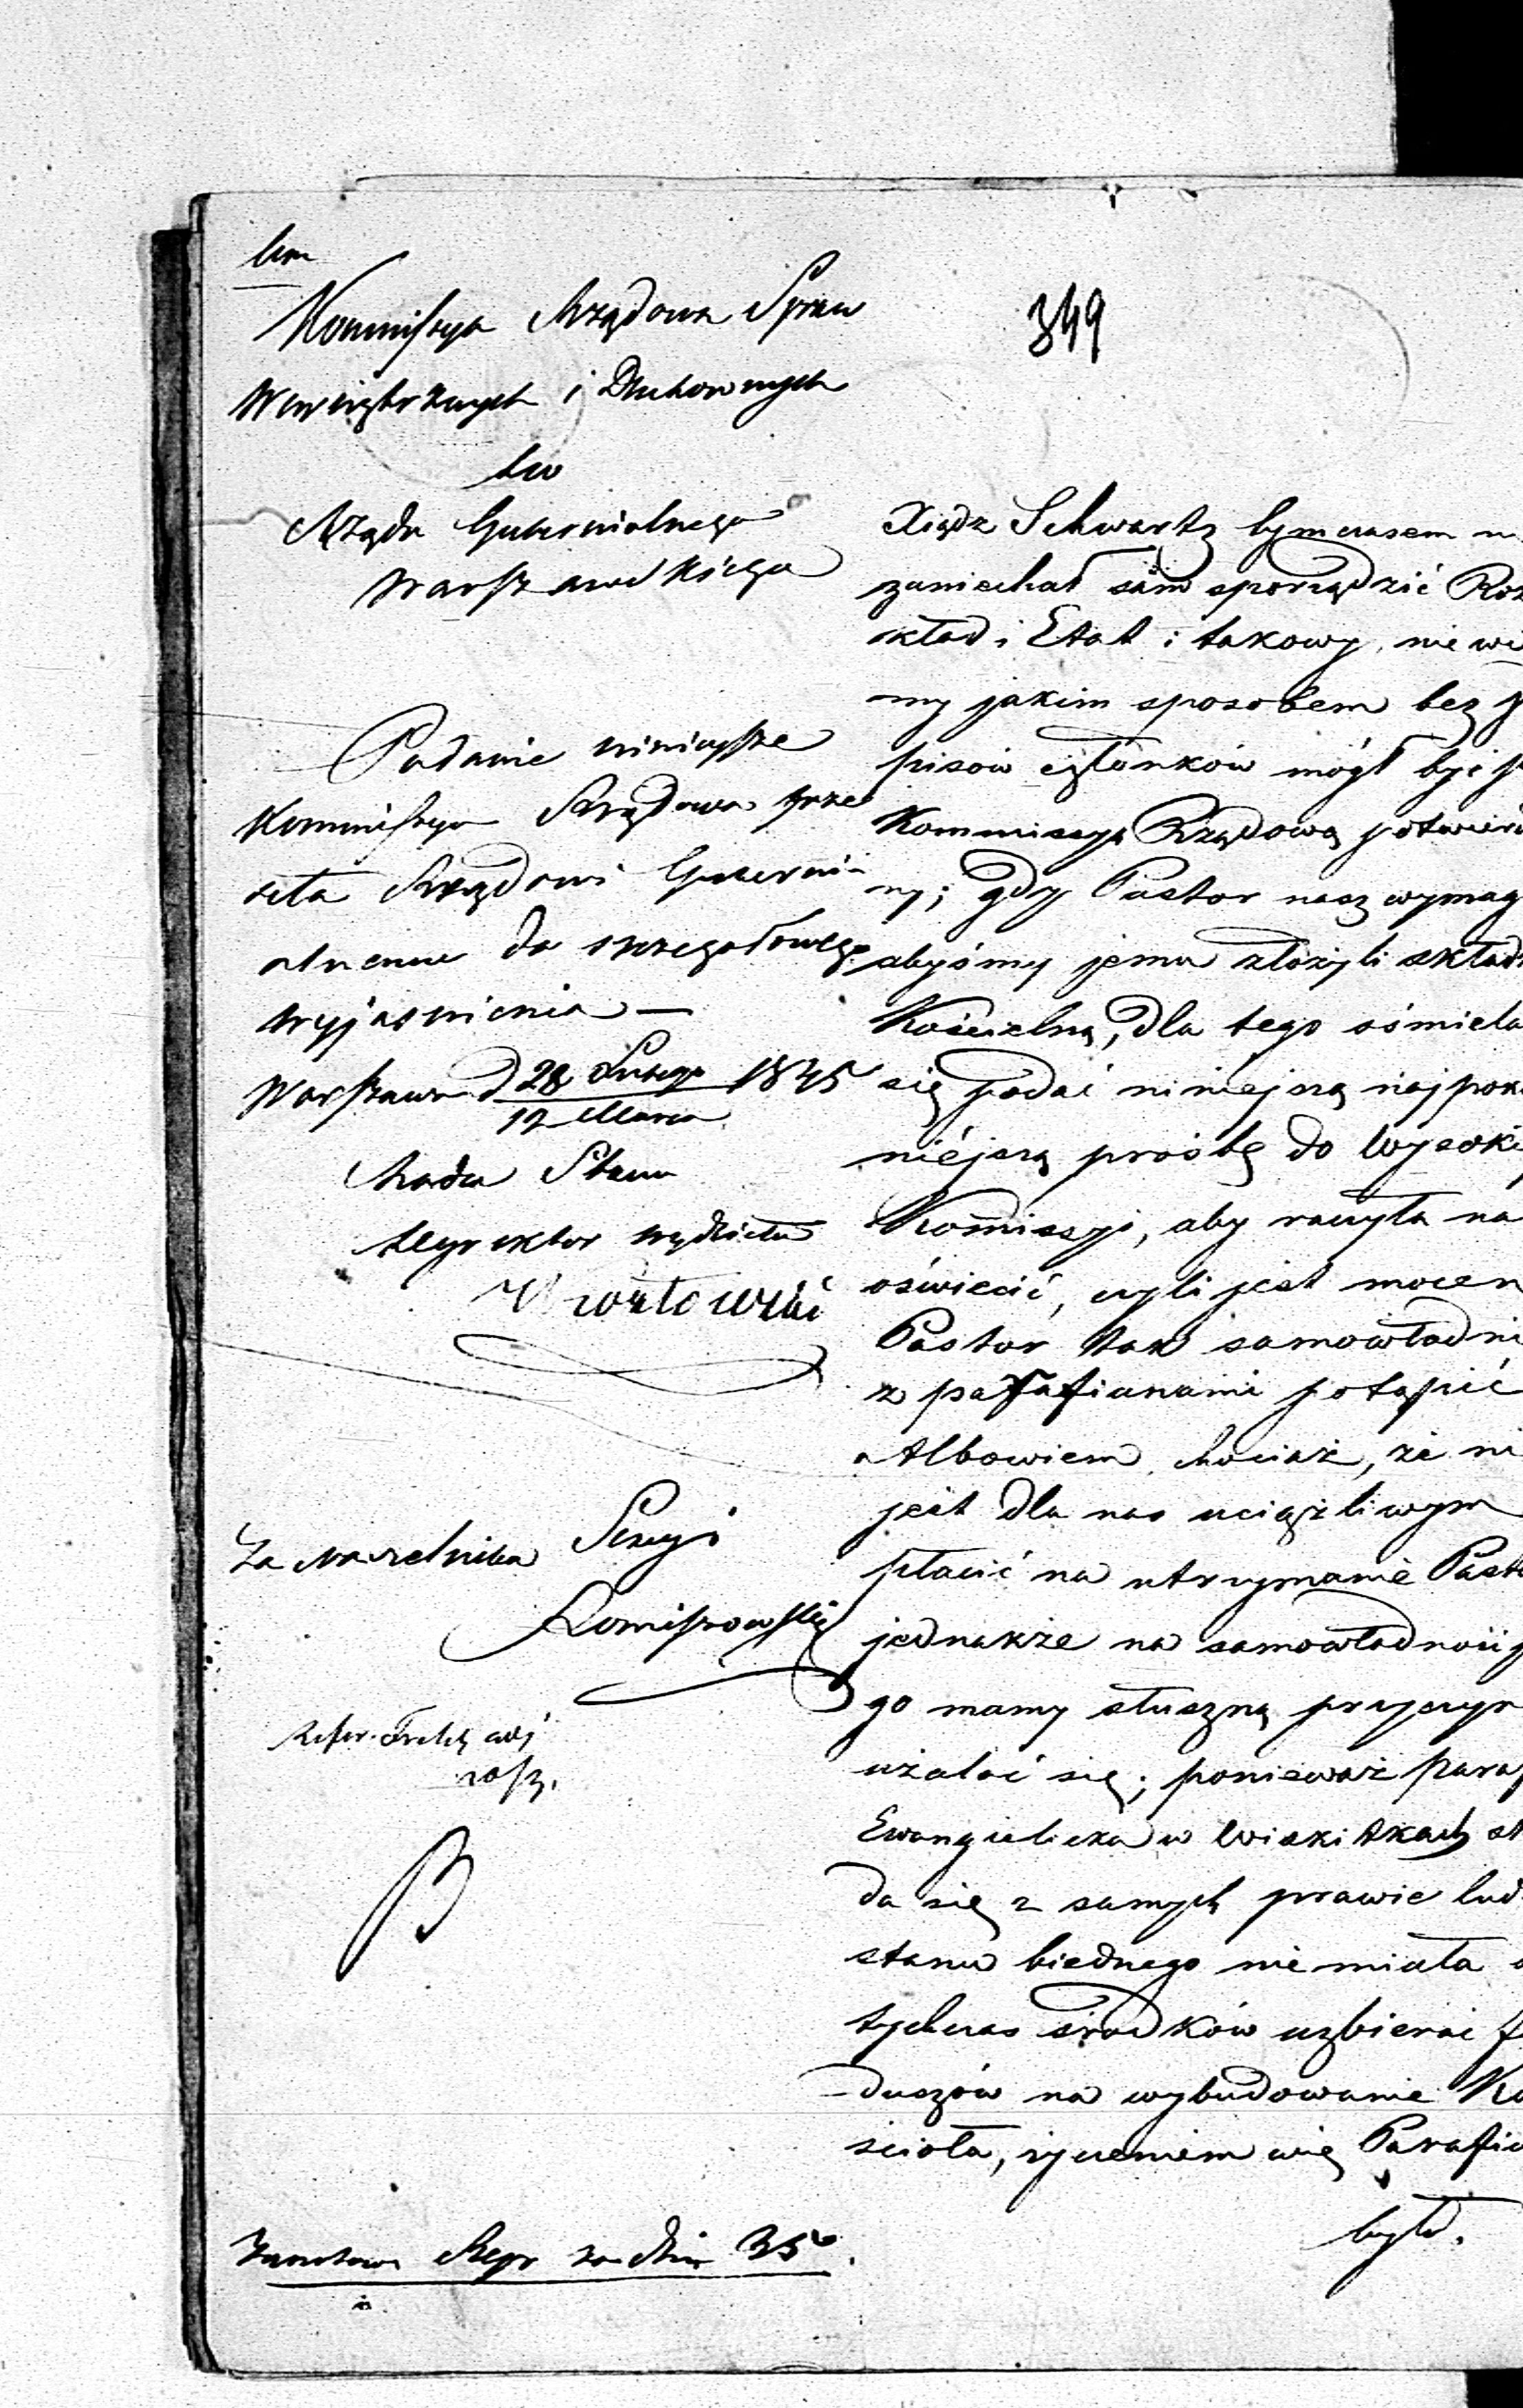 Kommissya Rządowa Spraw
Wewnętrznych i Duchownych
do
Rządu Gubernialnego
Warszawskiego
Podanie niniejsze
Kommissya Rządowa prze
seła Rządowi Guberni-
alnemu do szczegółowego
wyjasnienia —
Warszawa d 28 Lutego 1845
12 Marca
Radca Stanu
Dyrektor Wydziału
Za Naczelnika Sekcyi
349
Xiądz Schwartz tymczasem
zaniechał sam sporządzić Roz
kład i Etat i takowy, nie wie
my jakim sposobem bez
pisów członków mógł być
Kommissyą Rządową potwierd
ny; gdy Pastor nasz wymag
abyśmy jemu złożyli składk
Kościelną, dla tego ośmiela
się podać niniejszą najpok
niéjszą prośbę do Wysoki
Komissyi, aby raczyła na
oświecić, czyli jest mocen
Pastor tak samowładni
z parafianami postąpić
Albowiem chociaż, że ni
jest dla nas uciążliwym
płacić na utrzymanie Past
jednakże na samowładność
go mamy słuszną przyczyn
użalać się; ponieważ Paraf
Ewangielicka w Wiskitkach sk
da się z samych prawie lud
stanu biednego nie miała
tychczas środków uzbierać f
duszów na wybudowanie Ko
scioła, życzeniem więc Parafia
było.